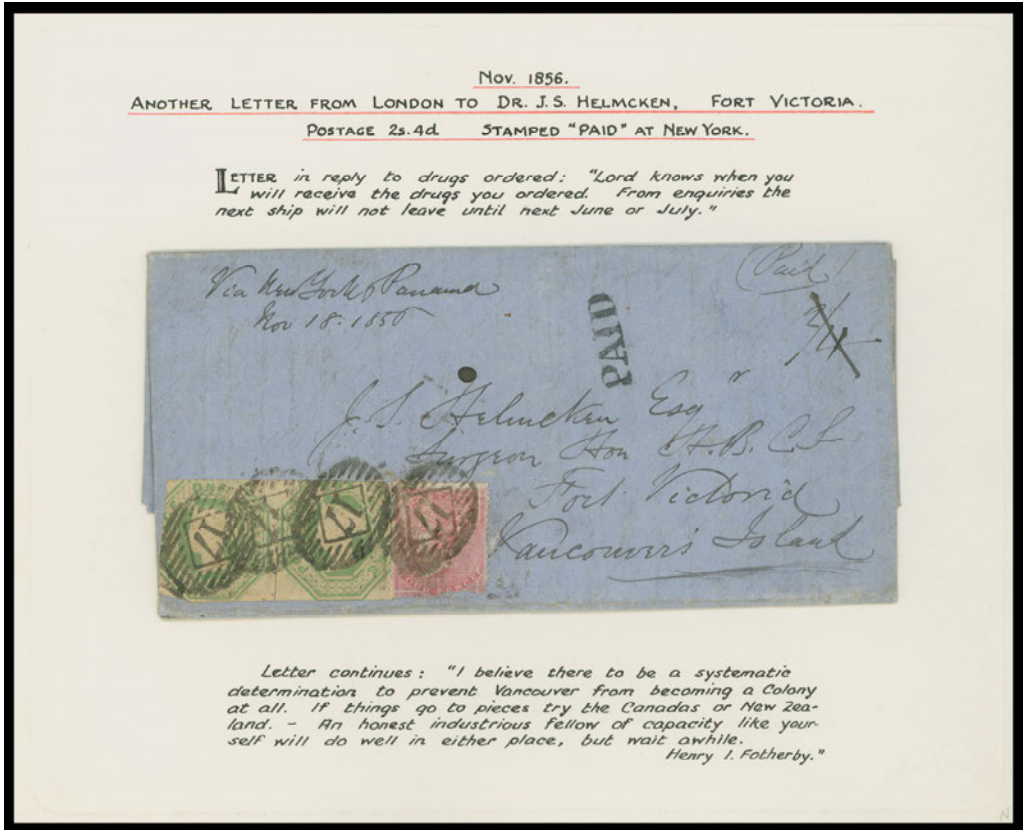 Nov. 1856.
ANOTHER LETTER FROM LONDON TO DR. J.S. HELMCKEN, FORT VICTORIA.
POSTAGE 2s.4d STAMPED "PAID" AT NEW YORK.
LETTER in reply to drugs ordered: "Lord knows when you
will receive the drugs you ordered. From enquiries the
next ship will not leave until next June or July."
(Paid)
Via New York & Panama
Nov 18. 1856
PAID
J. S. Helmcken Esqr
Surgeon Hon H. B. C. S
Fort Victoria
Vancouver's Island
17
17
17
17
Letter continues: "I believe there to be a systematic
determination to prevent Vancouver from becoming a Colony
at all. If things go to pieces try the Canadas or New Zea-
land. – An honest industrious fellow of capacity like your-
self will do well in either place, but wait awhile.
Henry I. Fotherby."
N